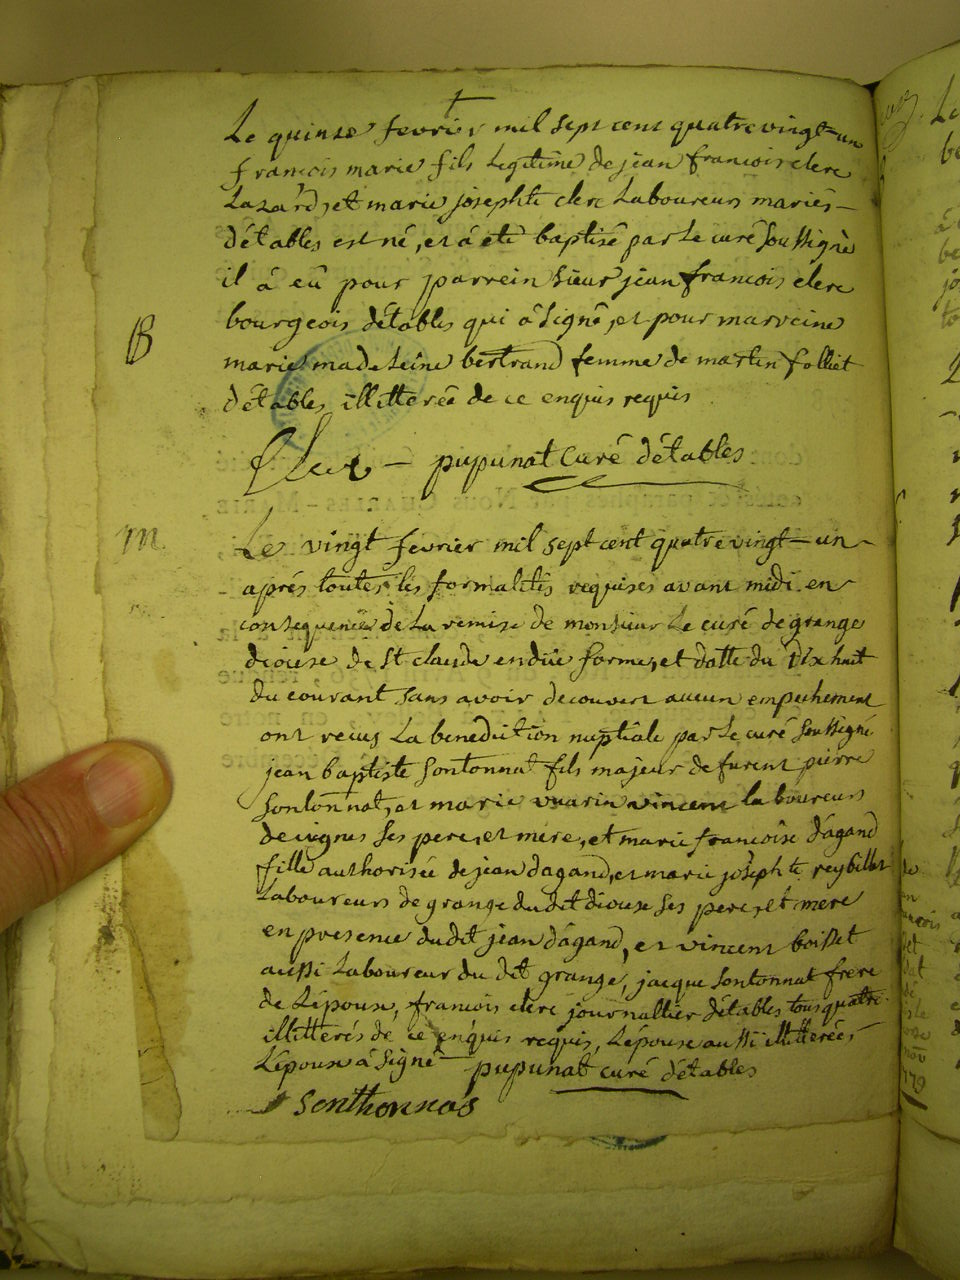 Le quinse fevrier mil sept cent quatre vingt-un
francois marie fils Legitime de jean francois clerc
Lazard, et marie josephte clerc Laboureurs mariés-
détables est né, et á eté baptisé par Le curé soussigné
il á eû pour parrein sieur jean francois clerc
B
bourgeois détables qui â signé, et pour marreine
marie madeleine bertrand femme de martin folliet
détables illitterée de ce enquis requis
Clerc - pupunat curé détables
m
Le vingt fevrier mil sept cent quatre vingt-un-
aprés toutes les formalités requises avant midi en
consequence de La remise de monsieur Le curé de grange
diocese de st claude en düe forme, et datte du dix huit
du courant sans avoir decouvert aucun empechement
ont recus La benediction nuptiale par Le curé soussigné
jean baptiste sontonnat fils majeur de furent pierre
sontonnat, et marie vuarin vincent laboureurs
de vignes ses pere, et mere, et marie francoise dágand
fille authorisée de jean dagand, et marie josephte reybillet
Laboureurs de grange dudit diocese ses pere, et mere
en presence dudit jean dágand, et vincent boisset
aussi Laboureur du dit grange, jacque sontonnat frere
de Lépoux, francois clerc journallier détables tous quatre
illitterés de ce enquis requis, Lépouse aussi illitterée
Lépoux â signé - pupunat curé détables
Sonthonnas